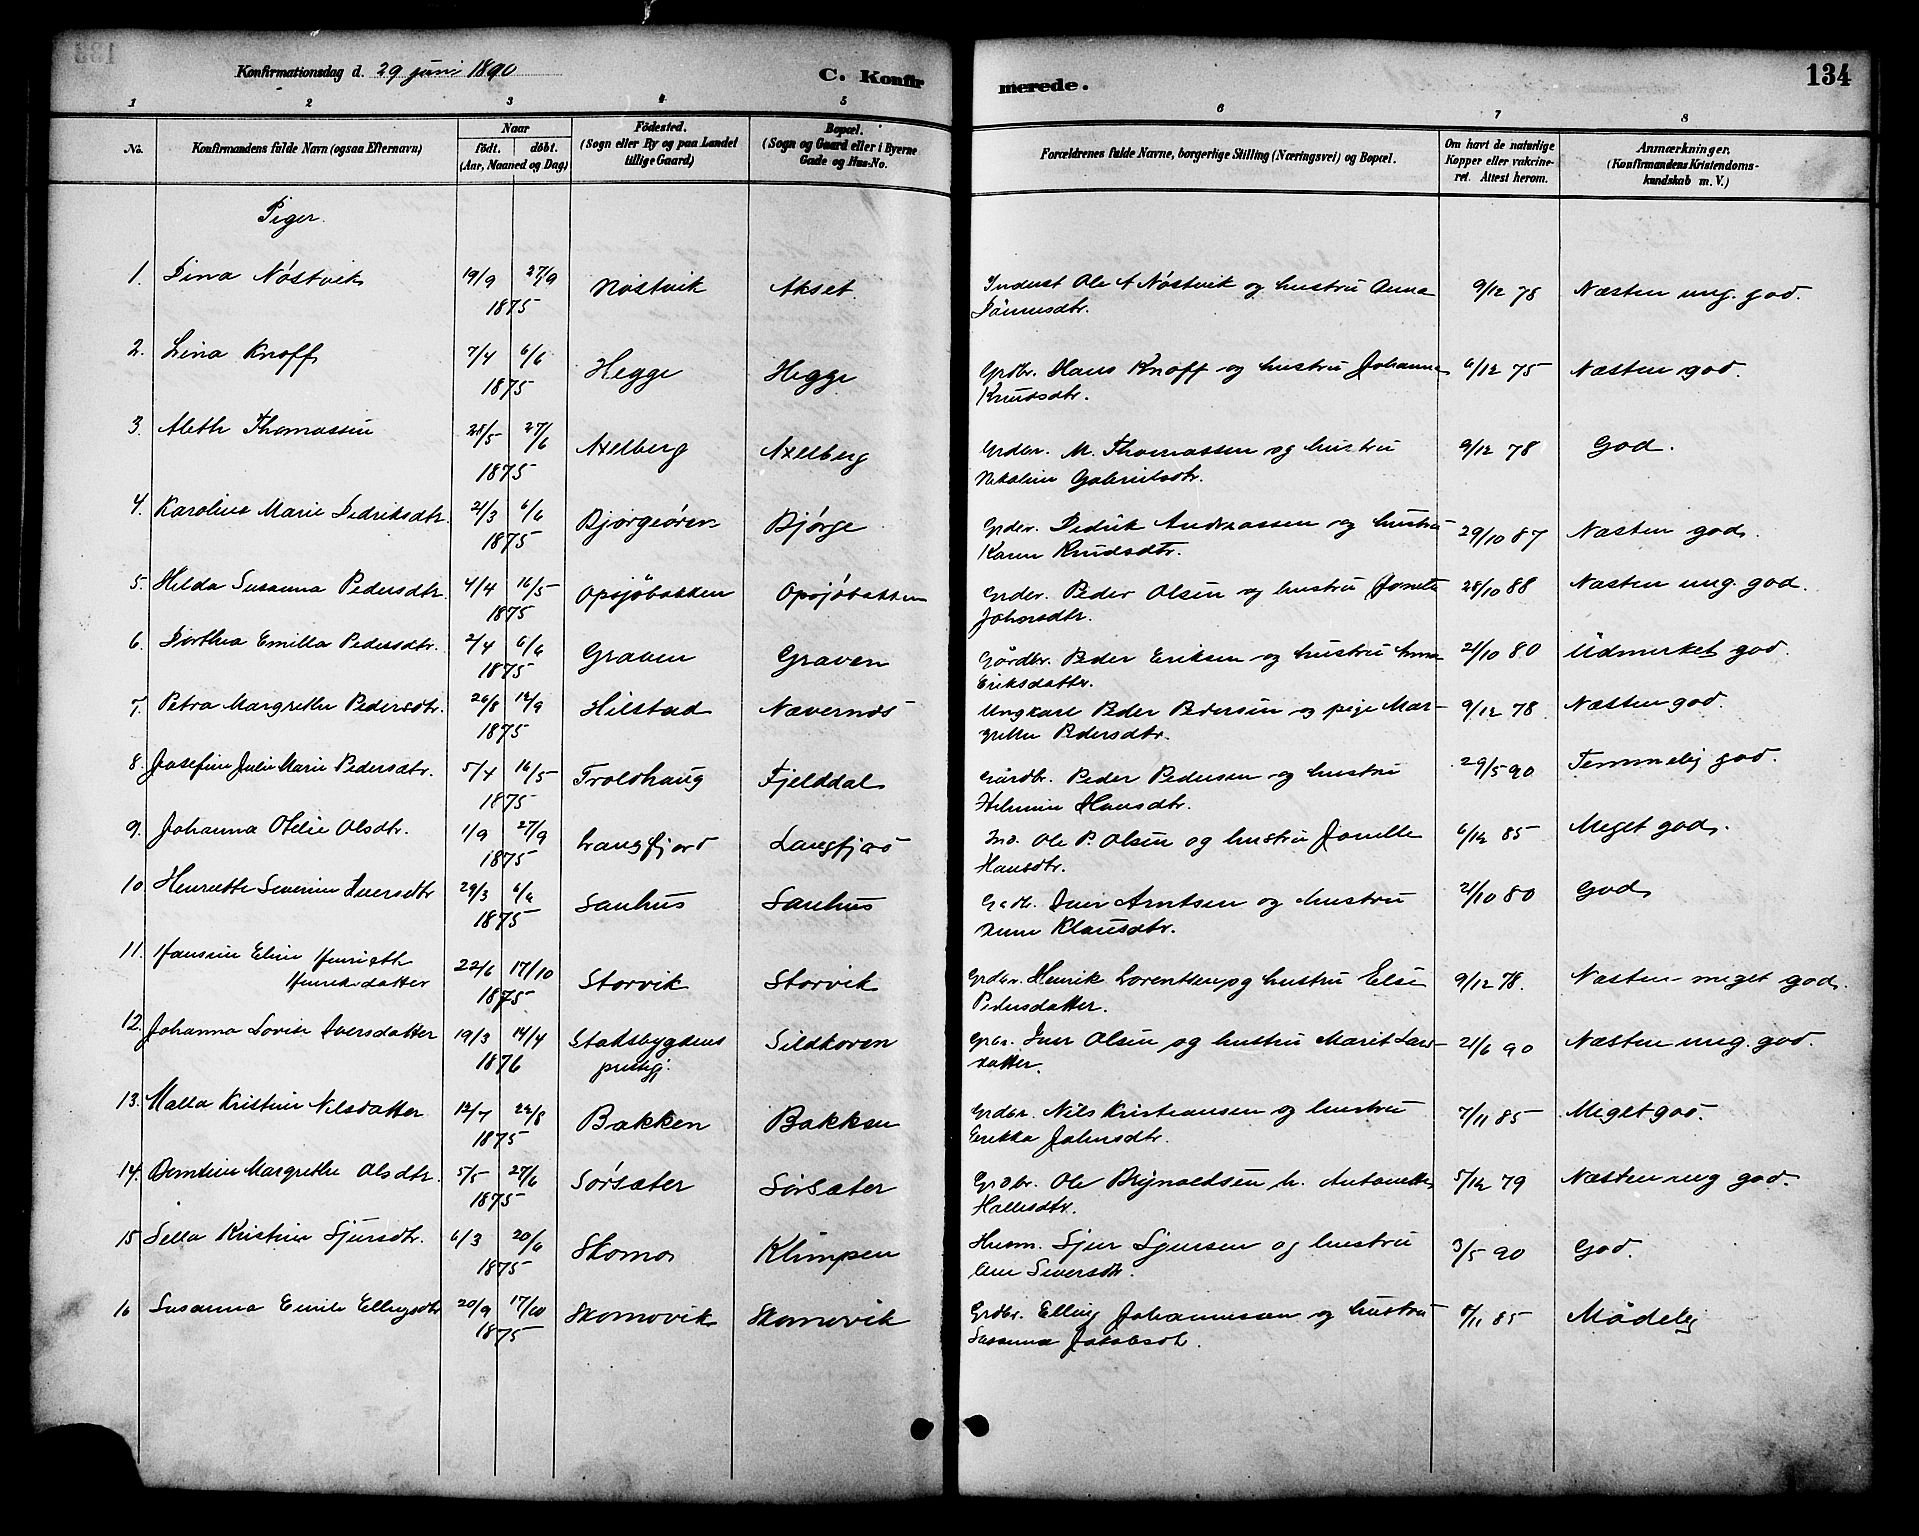 Konfirmationsdag d. 29 juni 1890 C. Konfirmerede. 134
1 2 3 4 5 6 7 8
No. Konfirmandens fulde Navn (ogsaa Efternavn) Naar födt. döbt. (Aar, Maaned og Dag) Födested. (Sogn eller By og paa Landet tillige Gaard) Bopæl. (Sogn og Gaard eller i Byerne Gade og Hus-No. Forældrenes fulde Navne, borgerlige Stilling (Næringsvei) og Bopæl. Om havt de naturlige Kopper eller vakcineret. Attest herom. Anmærkninger. (Konfirmandens Kristendomskundskab m. V.)
Piger.
1. Dina Nöstvik 19/9 27/9 1875 Nöstvik Akset. Indust Ole A Nöstvik og hustru Anna 9/12 78 Næsten ug. god.
2. Lina Knoff 7/4 6/6 1875 Hegge Hegge Grdbr. Hans Knoff og hustru Johanna Knudsdtr. 6/12 75 Næsten god.
3. Aleth Thomassen 28/5 27/6 1875 Axelberg Axelberg Grdbr. M. Thomassen og hustru Nikoline Gabrielsdtr. 9/12 78 God.
4. Karoline Marie Pedriksdtr. 21/3 6/6 1875 Bjørgeören Bjørge Grdbr. Andreassen og hustru Karen Knudsdtr. 29/10 87 Næsten god.
5. Hilda Susanna Pedersdtr. 4/4 16/5 1875 Opsjöbakken Opsjöbakken Grdbr. Peder Olsen og hustru Jonetta Johnsdtr. 28/10 88 Næsten ug. god.
6. Dorthea Emilla Pedersdtr. 2/4 6/6 1875 Graven Graven Gårdbr. Peder Eriksen og hustru Anna Eriksdatter. 21/10 80 Udmerket god.
7. Petra Margrethe Pedersdtr. 26/8 12/9 1875 Hilstad Nævernes Ungkarl Peder Pedersen og pige Margrethe Pedersdtr. 9/12 78. Næsten god.
8. Josefine Julie Marie Pedersdtr. 5/4 16/5 1875 Troldhaug Fjelddal Gårdbr. Peder Pedersen og hustru Hansdtr. 29/5 90 Temmelig god.
9. Johanna Otelie Olsdtr. 1/9 27/9 1875 Langfjord Langfjord Ole P. Olsen og hustru Jonette Hansdtr. 6/12 85 Meget god.
10. Henriette Severine Iversdtr 29/3 6/6 1875 Sanhus Sanhus Iver Arntsen og hustru Klausdtr. 21/10 80 God
11. Hansine Eline Henrieth Henriksdatter 22/6 17/10 1875 Storvik Storvik Grdbr. Henrik Lorentsen og hustru Else Pedersdatter. 9/12 78. Næsten meget god.
12. Johanna Lovise Iversdatter 19/3 14/4 1876 Stadsbygdens prestgj. Sildkoren Grbr. Iver Olsen og hustru Marit Larsdatter. 21/6 90 Næsten ug. god.
13. Malla Kristine Nilsdatter 12/7 22/8 1875 Bakken Bakken Grdbr. Nils Kristiansen og hustru Erikka Johnsdtr. 7/11 85 Meget god.
14. Margrethe Olsdtr. 5/5 27/6 1875 Sörsæter Sörsæter Grdbr. Ole Brynoldsen h. Antonette Hallesdtr. 5/12 79 Næsten ug god.
15 Sella Kristine Sjursdtr. 6/3 20/6 1875 Skomo Klimpen Husm. Sjur Sjursen og hustru Ane Siversdtr. 3/5 90 God.
16 Susanna Emile Ellingsdtr 20/9 17/10 1875 Skomovik Skomovik Grdbr. Elling Johannessen og hustru Susanna Jakobsdt. 8/11 85 Mådelig